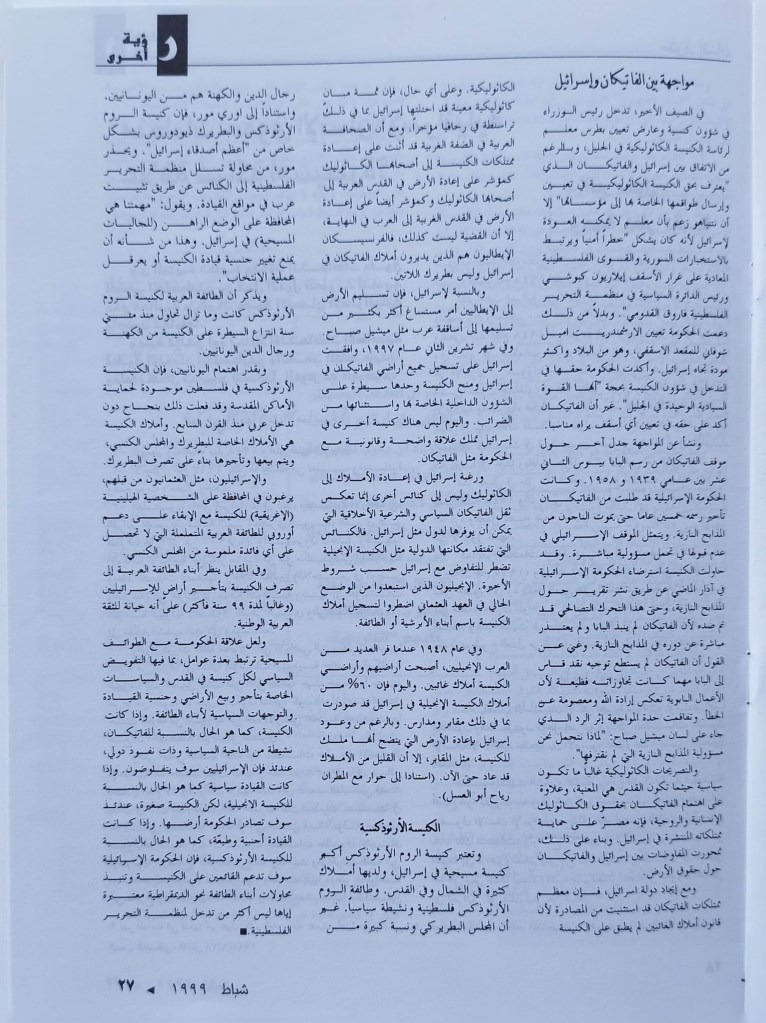 رؤية
أخرى
مواجهة بين الفاتيكان وإسرائيل
في الصيف الأخير، تدخل رئيس الوزراء
في شؤون كنسية وعارض تعيين بطرس معلم
لرئاسة الكنيسة الكاثوليكية في الجليل، وبالرغم
من الاتفاق بين إسرائيل والفاتيكان الذي
"يعترف بحق الكنيسة الكاثوليكية في تعيين
وإرسال طواقمها الخاصة بها إلى مؤسساتها" إلا
أن نتنياهو زعم بأن معلم لا يمكنه العودة
لإسرائيل لأنه كان يشكل "خطراً أمنياً ويرتبط
بالاستخبارات السورية والقوى الفلسطينية
المعادية على غرار الأسقف إيلاريون كبوشي
ورئيس الدائرة السياسية في منظمة التحرير
الفلسطينية فاروق القدومي". وبدلاً من ذلك
دعمت الحكومة تعيين الارشمندريت اميل
شوفاني للمقعد الاسقفي، وهو من البلاد واكثر
مودة تجاه إسرائيل. وأكدت الحكومة حقها في
التدخل في شؤون الكنيسة بحجة "أنها القوة
السيادية الوحيدة في الجليل". غير أن الفاتيكان
أكد على حقه في تعيين أي أسقف يراه مناسبا.
ونشأ عن المواجهة جدل آخر حول
موقف الفاتيكان من رسم البابا بيوس الثاني
عشر بين عامي ١٩٣٩ و ١٩٥٨. وكانت
الحكومة الإسرائيلية قد طلبت من الفاتيكان
تأخير رسمه خمسين عاما حتى يموت الناجون من
المذابح النازية. ويتمثل الموقف الإسرائيلي في
عدم قبولها في تحمل مسؤولية مباشرة. وقد
حاولت الكنيسة استرضاء الحكومة الإسرائيلية
في آذار الماضي عن طريق نشر تقرير حول
المذابح النازية، وحتى هذا التحرك التصالحي قد
تم صده لأن الفاتيكان لم ينبذ البابا ولم يعتذر
مباشرة عن دوره في المذابح النازية. وغني عن
القول أن الفاتيكان لم يستطع توجيه نقد قاس
إلى البابا مهما كانت تجاوزاته فظيعة لأن
الأعمال البابوية تعكس إرادة الله ومعصومة عن
الخطأ. وتفاقمت حدة المواجهة إثر الرد الذي
جاء على لسان ميشيل صباح: "لماذا نتحمل نحن
مسؤولية المذابح النازية التي لم نقترفها".
والتصريحات الكاثوليكية غالبا ما تكون
سياسية حيثما تكون القدس هي المعنية، وعلاوة
على اهتمام الفاتيكان بحقوق الكاثوليك
الإنسانية والروحية، فإنه مصرّ على حماية
ممتلكاته المنتشرة في إسرائيل. وبناء على ذلك،
تمحورت المفاوضات بين إسرائيل والفاتيكان
حول حقوق الأرض.
ومع إيجاد دولة اسرائيل، فإن معظم
ممتلكات الفاتيكان قد استثنيت من المصادرة لأن
قانون أملاك الغائبين لم يطبق على الكنيسة
الكاثوليكية. وعلى أي حال، فإن ثمة مبان
كاثوليكية معينة قد احتلتها إسرائيل بما في ذلك
تراسنطة في رحافيا مؤخراً. ومع أن الصحافة
العربية في الضفة الغربية قد أثنت على إعادة
ممتلكات الكنيسة إلى أصحابها الكاثوليك
كمؤشر على إعادة الأرض في القدس العربية إلى
أصحابها الكاثوليك وكمؤشر أيضا على إعادة
الأرض في القدس الغربية إلى العرب في النهاية،
إلا أن القضية ليست كذلك، فالفرنسيسكان
الإيطاليون هم الذين يديرون أملاك الفاتيكان في
إسرائيل وليس بطريرك اللاتين.
وبالنسبة لإسرائيل، فإن تسليم الأرض
إلى الإيطاليين أمر مستساغ أكثر بكثير من
تسليمها إلى أساقفة عرب مثل ميشيل صباح.
وفي شهر تشرين الثاني عام ١٩٩٧، وافقت
إسرائيل على تسجيل جميع أراضي الفاتيكان في
إسرائيل ومنح الكنيسة وحدها سيطرة على
الشؤون الداخلية الخاصة بها واستثنائها من
الضرائب. واليوم ليس هناك كنيسة أخرى في
إسرائيل تملك علاقة واضحة وقانونية مع
الحكومة مثل الفاتيكان.
ورغبة إسرائيل في إعادة الأملاك إلى
الكاثوليك وليس إلى كنائس أخرى إنما تعكس
ثقل الفاتيكان السياسي والشرعية الأخلاقية التي
يمكن أن يوفرها لدول مثل إسرائيل. فالكنائس
التي تفتقد مكانتها الدولية مثل الكنيسة الإنجيلية
تضطر للتفاوض مع إسرائيل حسب شروط
الأخيرة. الإنجيليون الذين استبعدوا من الوضع
الحالي في العهد العثماني اضطروا لتسجيل أملاك
الكنيسة باسم أبناء الأبرشية أو الطائفة.
وفي عام ١٩٤٨ عندما فر العديد من
العرب الإنجيليين، أصبحت أراضيهم وأراضي
الكنيسة أملاك غائبين. واليوم فإن ٦٠% من
أملاك الكنيسة الإنجيلية في إسرائيل قد صودرت
بما في ذلك مقابر ومدارس. وبالرغم من وعود
إسرائيل بإعادة الأرض التي يتضح أنها ملك
للكنيسة، مثل المقابر، إلا أن القليل من الأملاك
قد عاد حتى الآن. (استنادا إلى حوار مع المطران
رياح أبو العسل).
الكنيسة الأرثوذكسية
وتعتبر كنيسة الروم الأرثوذكس أكبر
كنيسة مسيحية في إسرائيل، ولديها أملاك
كثيرة في الشمال وفي القدس. وطائفة الروم
الأرثوذكس فلسطينية ونشيطة سياسياً. غير
أن المجلس البطريركي ونسبة كبيرة من
رجال الدين والكهنة هم من اليونانيين.
واستناداً إلى اوري مور، فإن كنيسة الروم
الأرثوذكس والبطريرك ذيودوروس بشكل
خاص من "أعظم أصدقاء إسرائيل". ويحذر
مور، من محاولة تسلل منظمة التحرير
الفلسطينية إلى الكنائس عن طريق تثبيت
عرب في مواقع القيادة. ويقول: "مهمتنا هي
المحافظة على الوضع الراهن (للجاليات
المسيحية) في إسرائيل. وهذا من شأنه أن
يمنع تغيير جنسية قيادة الكنيسة أو يعرقل
عملية الانتخاب".
ويذكر أن الطائفة العربية لكنيسة الروم
الأرثوذكس كانت وما تزال تحاول منذ مئتي
سنة انتزاع السيطرة على الكنيسة من الكهنة
ورجال الدين اليونانيين.
وبقدر اهتمام اليونانيين، فإن الكنيسة
الأرثوذكسية في فلسطين موجودة لحماية
الأماكن المقدسة وقد فعلت ذلك بنجاح دون
تدخل عربي منذ القرن السابع. وأملاك الكنيسة
هي الأملاك الخاصة للبطريرك والمجلس الكنسي،
ويتم بيعها وتأجيرها بناء على تصرف البطريرك.
والإسرائيليون، مثل العثمانيون من قبلهم،
يرغبون في المحافظة على الشخصية الهيلينية
(الإغريقية) للكنيسة مع الإبقاء على دعم
أوروبي للطائفة العربية المتململة التي لا تحصل
على أي فائدة ملموسة من المجلس الكنسي.
وفي المقابل ينظر أبناء الطائفة العربية إلى
تصرف الكنيسة بتأجير أراض للإسرائيليين
(وغالباً لمدة ٩٩ سنة فأكثر) على أنه خيانة للثقة
العربية الوطنية.
ولعل علاقة الحكومة مع الطوائف
المسيحية ترتبط بعدة عوامل، بما فيها التفويض
السياسي لكل كنيسة في القدس والسياسات
الخاصة بتأجير وبيع الأراضي وجنسية القيادة
والتوجهات السياسية لأبناء الطائفة. وإذا كانت
الكنيسة، كما هو الحال بالنسبة للفاتيكان،
نشيطة من الناحية السياسية وذات نفوذ دولي،
عندئذ فإن الإسرائيليين سوف يتفاوضون. وإذا
كانت القيادة سياسية كما هو الحال بالنسبة
للكنيسة الانجيلية، لكن الكنيسة صغيرة، عندئذ
سوف تصادر الحكومة أرضها. وإذا كانت
القيادة أجنبية وطيعّة، كما هو الحال بالنسبة
للكنيسة الأرثوذكسية، فإن الحكومة الإسرائيلية
سوف تدعم القائمين على الكنيسة وتنبذ
محاولات أبناء الطائفة نحو الديمقراطية معتبرة
إياها ليس أكثر من تدخل لمنظمة التحرير
الفلسطينية.■
شباط ١٩٩٩ ◄ ٢٧